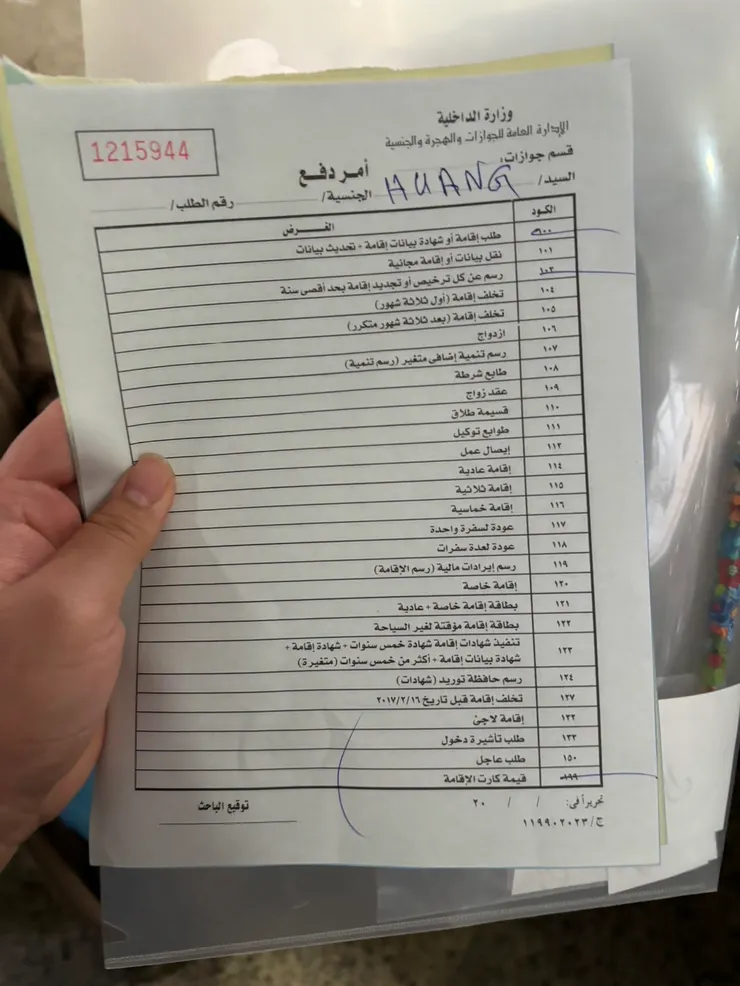 وزارة الداخلية
الإدارة العامة للجوازات والهجرة والجنسية
قسم جوازات:
1215944
أمر دفع
السيد/ HUANG الجنسية/ رقم الطلب/
الكود الغرض
١٠٠ طلب إقامة أو شهادة بيانات إقامة + تحديث بيانات
١٠١ نقل بيانات أو إقامة مجانية
١٠٣ رسم عن كل ترخيص أو تجديد إقامة بحد أقصى سنة
١٠٤ تخلف إقامة (أول ثلاثة شهور)
١٠٥ تخلف إقامة (بعد ثلاثة شهور متكرر)
١٠٦ ازدواج
١٠٧ رسم تنمية إضافى متغير (رسم تنمية)
١٠٨ طابع شرطة
١٠٩ عقد زواج
١١٠ قسيمة طلاق
١١١ طوابع توكيل
١١٢ إيصال عمل
١١٤ إقامة عادية
١١٥ إقامة ثلاثية
١١٦ إقامة خماسية
١١٧ عودة لسفرة واحدة
١١٨ عودة لعدة سفرات
١١٩ رسم إيرادات مالية (رسم الإقامة)
١٢٠ إقامة خاصة
١٢١ بطاقة إقامة خاصة + عادية
١٢٢ بطاقة إقامة مؤقتة لغير السياحة
١٢٣ تنفيذ شهادات إقامة شهادة خمس سنوات + شهادة إقامة +
شهادة بيانات إقامة + أكثر من خمس سنوات (متغيرة)
١٢٤ رسم حافظة توريد (شهادات)
١٢٧ تخلف إقامة قبل تاريخ ٢٠١٧/٢/١٦
١٣٢ إقامة لاجئ
١٣٣ طلب تأشيرة دخول
١٥٠ طلب عاجل
١٩٩ قيمة كارت الإقامة
تحريراً فى: / / ٢٠
توقيع الباحث
ج/١١٩٩٠٢٠٢٣